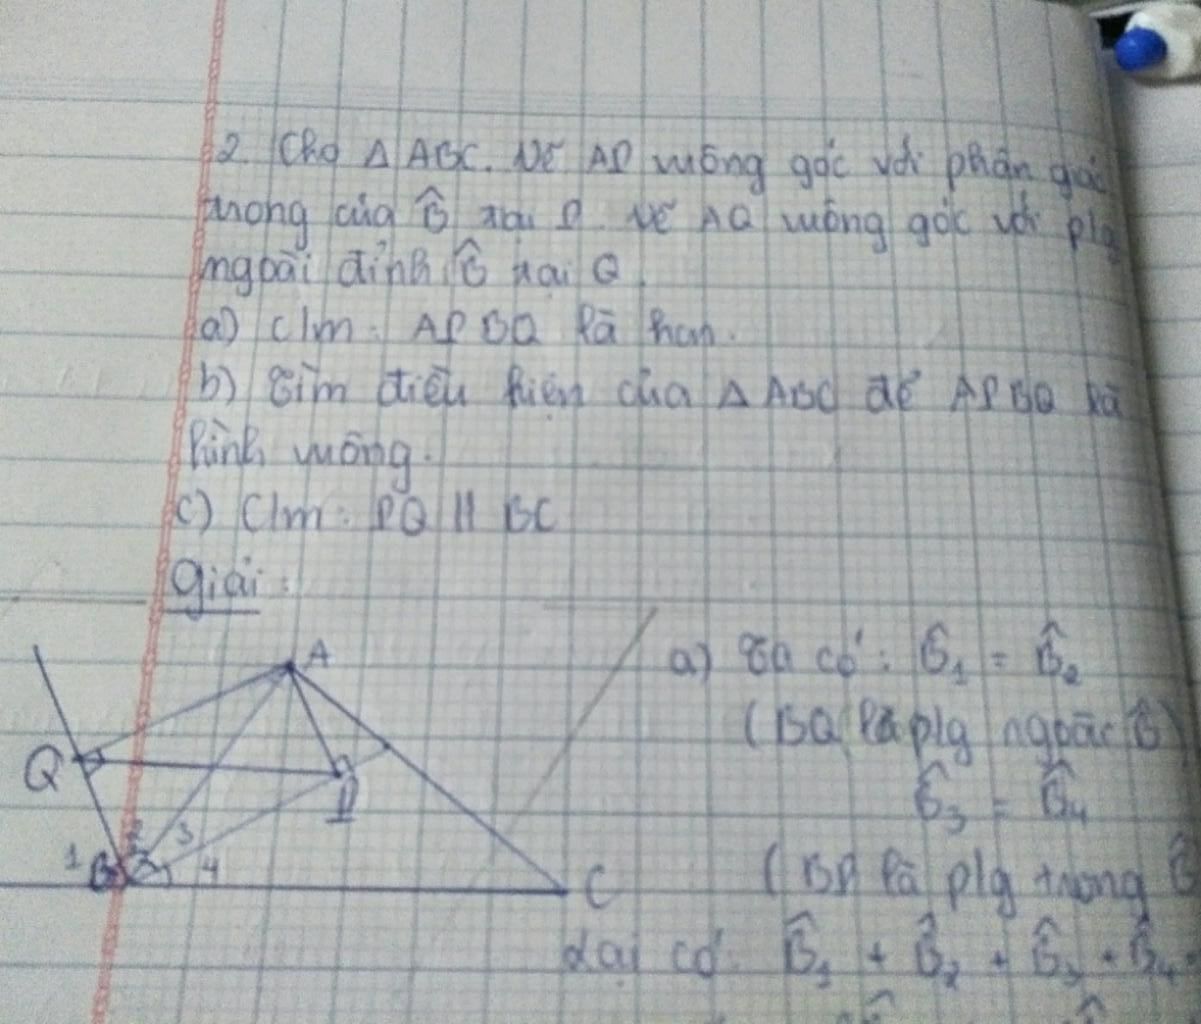 2. Cho Δ ABC. Vẽ AP vuông góc với phân giác
trong của B̂ tại P. Vẽ AQ vuông góc với p/g
ngoài đỉnh B̂ tại Q.
a) C/m: APBQ là hcn.
b) Tìm điều kiện của Δ ABC để APBQ là
hình vuông.
c) C/m: PQ // BC
Giải:
A
Q
P
1 B 2 3 4
C
a) Ta có: B̂₁ = B̂₂
(BQ là p/g ngoài B̂)
B̂₃ = B̂₄
(BP là p/g trong B̂
Lại có: B̂₁ + B̂₂ + B̂₃ + B̂₄ =